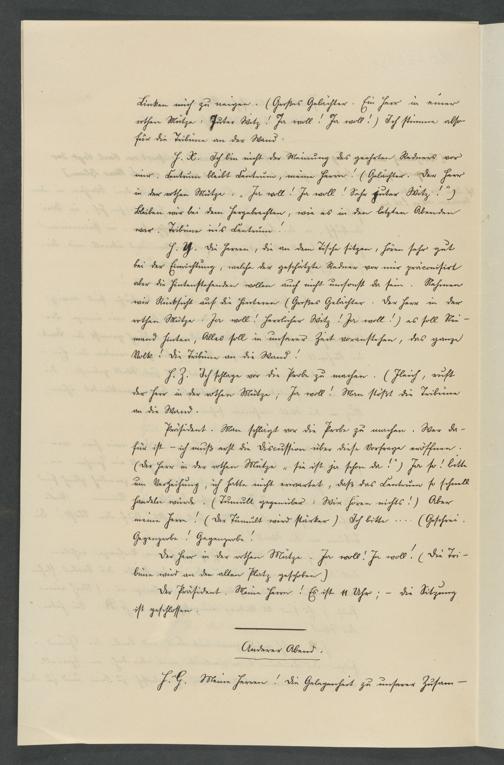 Linken mich zu neigen. (Großes Gelächter. Ein Herr in einer
rothen Mütze: Guter Witz! Ja wohl! Ja wohl!) Ich stimme also
für die Tribüne an der Wand.
H. X. Ich bin nicht der Meinung des geehrten Redners vor
mir. Centrum bleibt Centrum, meine Herrn! (Gelächter. Der Herr
in der rothen Mütze. Ja wohl! Ja wohl! Sehr guter Witz!")
Bleiben wir bei dem Hergebrachten, wie es in den letzten Abenden
war. Tribüne in's Centrum!
H. Y. Die Herren, die an dem Tische sitzen, hören sehr gut
bei der Einrichtung, welche der geschätzte Redner vor mir präconisirt
aber die Hintenstehenden wollen auch nicht umsonst da sein. Nehmen
wir Rücksicht auf die Hinteren (Großes Gelächter. Der Herr in der
rothen Mütze: Ja wohl! Herrlicher Witz! Ja wohl!) es soll Nie-
mand hinten, Alles soll in unserer Zeit voranstehen, das ganze
Volk! Die Tribüne an die Wand!
H. Z. Ich schlage vor die Probe zu machen. (Gleich, ruft
der Herr in der rothen Mütze; Ja wohl! Man stößt die Tribüne
an die Wand.
Präsident. Man schlägt vor die Probe zu machen. Wer da-
für ist – ich muß erst die Discussion über diese Vorfrage eröffnen.
(Der Herr in der rothen Mütze „sie ist ja schon da!") Ja so! bitte
um Verzeihung, ich hatte nicht erwartet, daß das Centrum so schnell
handeln würde. (Tumult gegenüber: Wir hören nichts!) Aber
meine Herrn! (Der Tumult wird stärker) Ich bitte .... (Geschrei.
Gegenprobe! Gegenprobe!
Der Herr in der rothen Mütze. Ja wohl! Ja wohl! (Die Tri-
büne wird an den alten Platz geschoben)
Der Präsident. Meine Herrn! Es ist 11 Uhr; – die Sitzung
ist geschlossen.
Anderer Abend.
H. G. Meine Herren! Die Gelegenheit zu unserer Zusam-